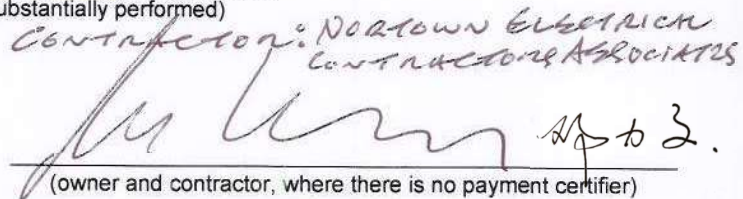 ubstantially performed)
CONTRACTOR: NORTOWN ELECTRICAL
CONTRACTORS ASSOCIATES
(owner and contractor, where there is no payment certifier)